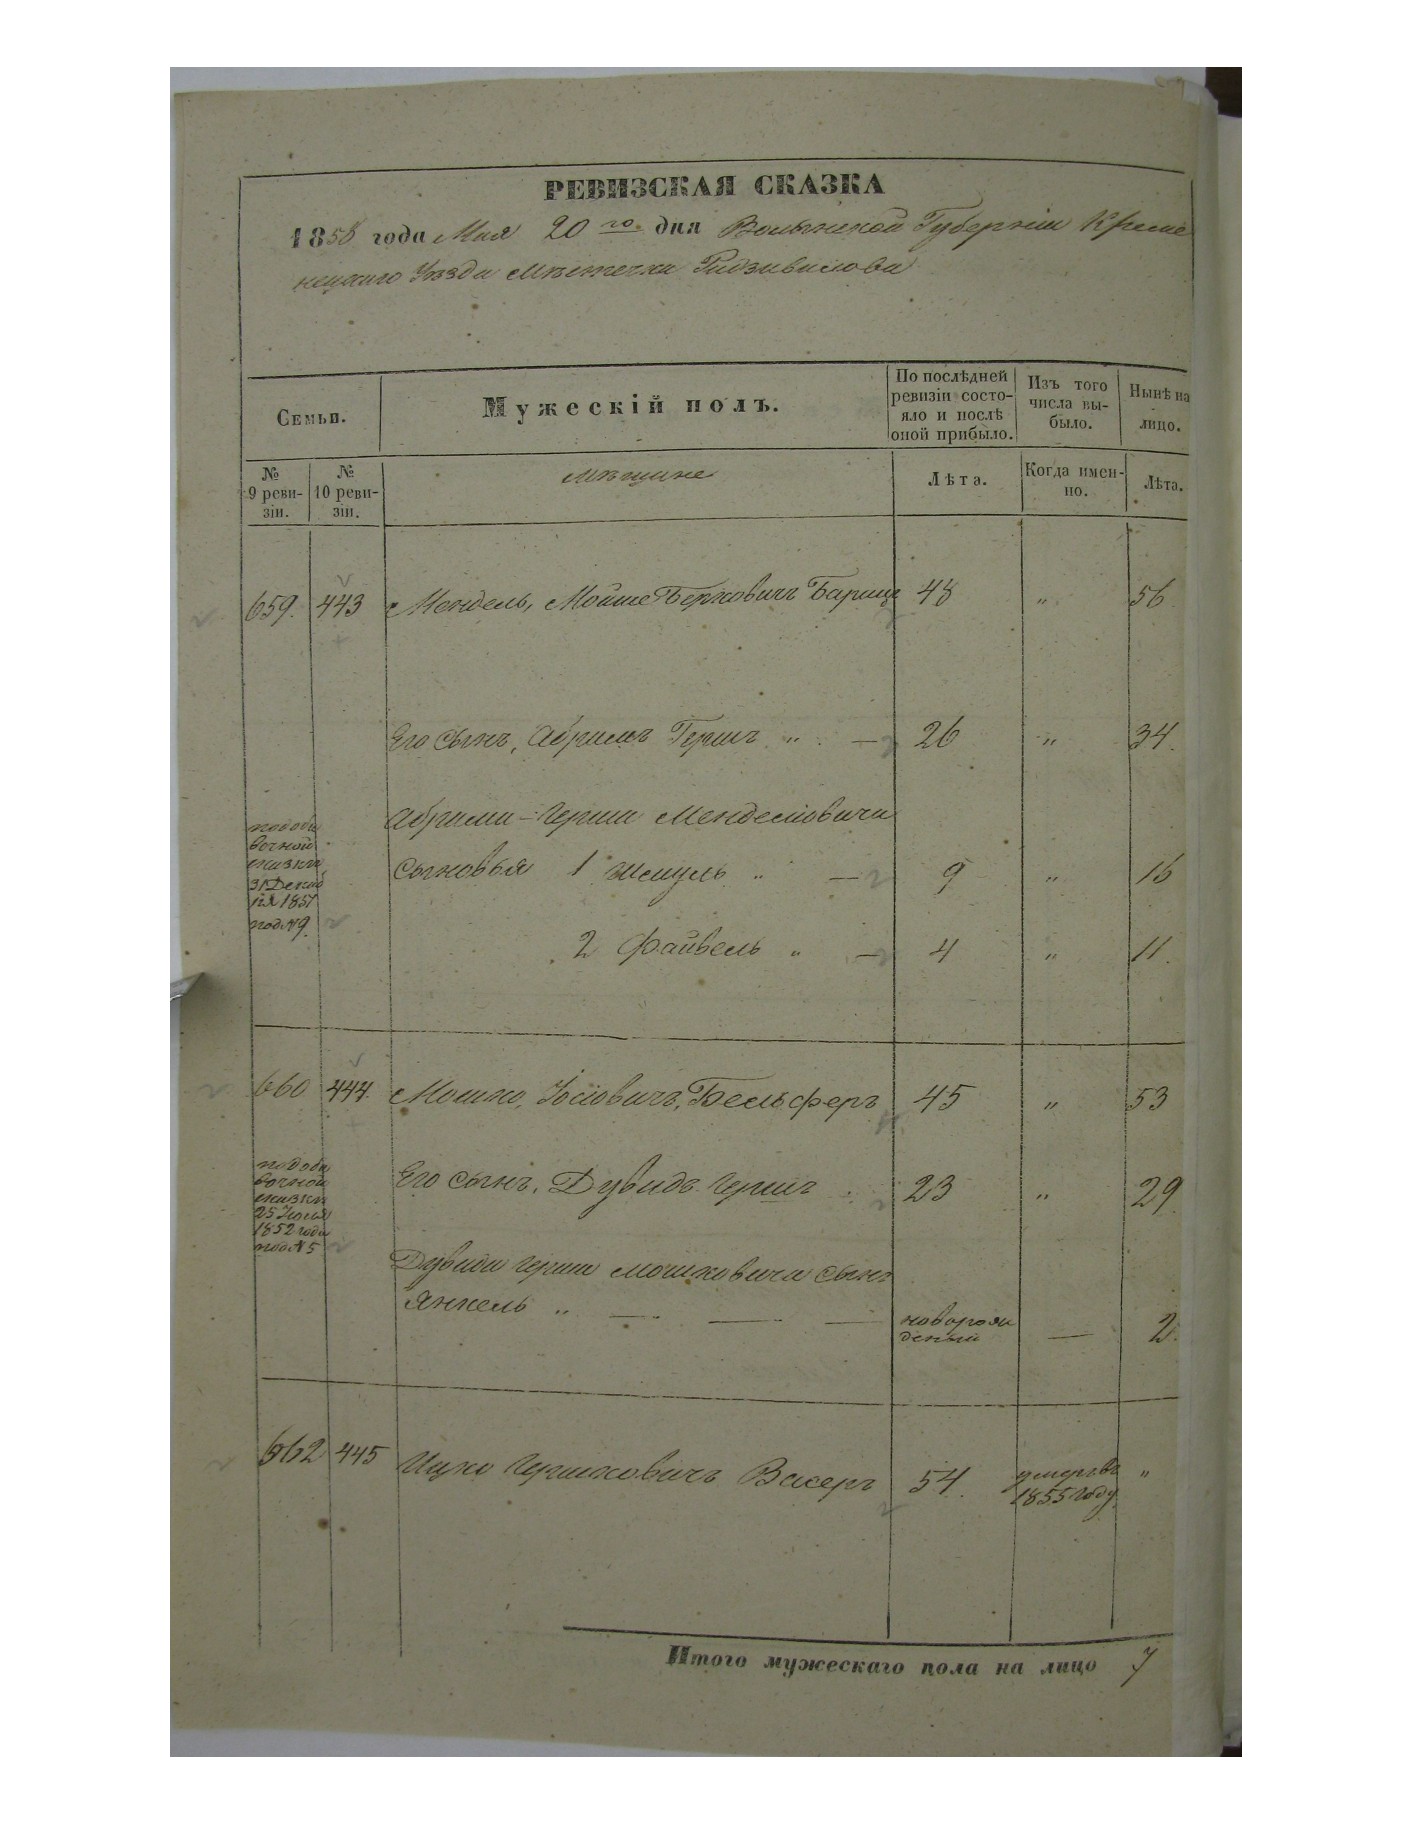 РЕВИЗСКАЯ СКАЗКА
1858 года Мая 20 го дня Волынской Губерніи Креме
нецкаго Уѣзда Мѣстечка Радзивилова
Семьи.
Мужескій полъ.
По послѣдней
ревизіи состо-
яло и послѣ
оной прибыло.
Изъ того
числа вы-
было.
Нынѣ на
лицо.
№
9 реви-
зіи.
№
10 реви-
зіи.
Мѣщане
Лѣта.
Когда имен-
но.
Лѣта.
659. 443 Мендель, Мойше Берковичъ Барацъ 48 " 56
Его Сынъ, Абрамъ Гершъ " — 26 " 34.
Абрама-Герша Менделіовича
по доба
вочной
сказкѣ
31 Декаб
ря 1857
под №9.
Сыновья 1 Шмуль " — 9 " 16
2 Файвель " — 4 " 11.
660 444. Мошко, Іосіовичъ, Бельферъ 45 " 53
по доба
вочной
сказкѣ
1852 года
под №5
Его сынъ, Дувидъ Гершъ 23 " 29
Дувида Герша Мошковича сынъ
Янкель " — — — новорож
денный — 2.
662 445 Ицко Гершковичъ Вексеръ 54. умеръ въ
1855 году "
Итого мужескаго пола на лицо 7